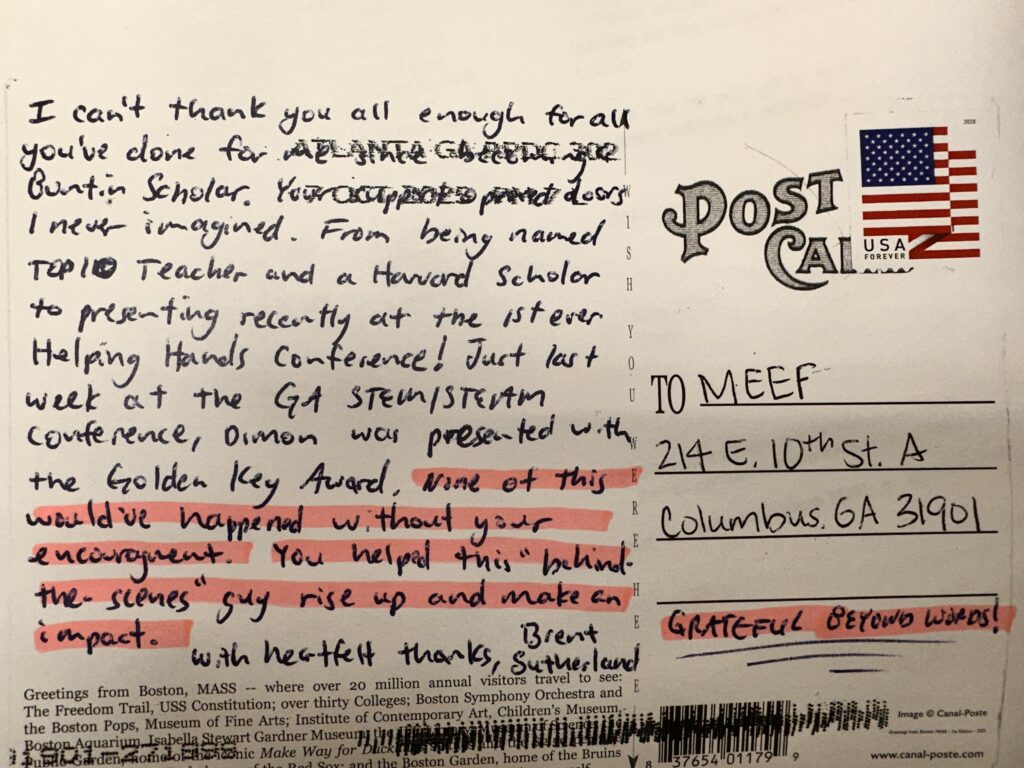 I can't thank you all enough for all
you've done for me since becoming a
ATLANTA GA RPDC 302
Buntin Scholar. Your support opened doors
OCT 2025
I never imagined. From being named
TOP 10 Teacher and a Harvard Scholar
to presenting recently at the 1st ever
Helping Hands Conference! Just last
week at the GA STEM/STEAM
conference, Dimon was presented with
the Golden Key Award. None of this
would've happened without your
encouragment. You helped this "behind-
the-scenes" guy rise up and make an
impact.
with heartfelt thanks, Brent
Sutherland
Greetings from Boston, MASS -- where over 20 million annual visitors travel to see:
The Freedom Trail, USS Constitution; over thirty Colleges; Boston Symphony Orchestra and
the Boston Pops, Museum of Fine Arts; Institute of Contemporary Art, Children's Museum,
Boston Aquarium, Isabella Stewart Gardner Museum,
Public Garden, home of the iconic Make Way for
of the Red Sox; and the Boston Garden, home of the Bruins
WISH YOU WERE HE
POST
CA
2018
USA
FOREVER
TO MEEF
214 E. 10th St. A
Columbus, GA 31901
GRATEFUL BEYOND WORDS!
8 37654 01179 9
Image © Canal-Poste
www.canal-poste.com